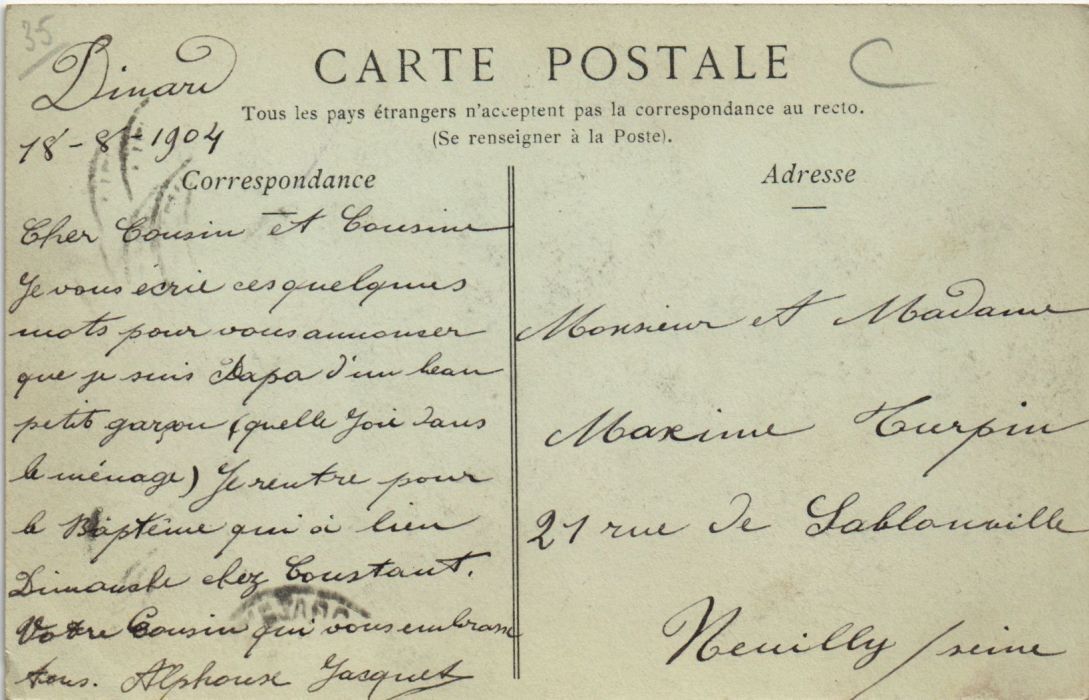 35
Dinard
CARTE POSTALE
Tous les pays étrangers n'acceptent pas la correspondance au recto.
(Se renseigner à la Poste).
18-8-1904
Correspondance
Cher Cousin et Cousine
Je vous écrie ces quelques
mots pour vous annonser
que je suis Papa d'un beau
petit garçon (quelle Joie dans
le ménage) Je rentre pour
le Baptême qui à lieu
Dimanche chez Constant.
Votre Cousin qui vous embrasse
tous. Alphonse Jacquet
Adresse
Monsieur et Madame
Maxime Turpin
21 rue de Sablonville
Neuilly / seine